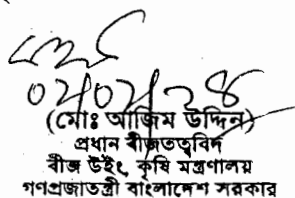 (মোঃ আজিম উদ্দিন)
প্রধান বীজতত্ত্ববিদ
বীজ উইং, কৃষি মন্ত্রণালয়
গণপ্রজাতন্ত্রী বাংলাদেশ সরকার